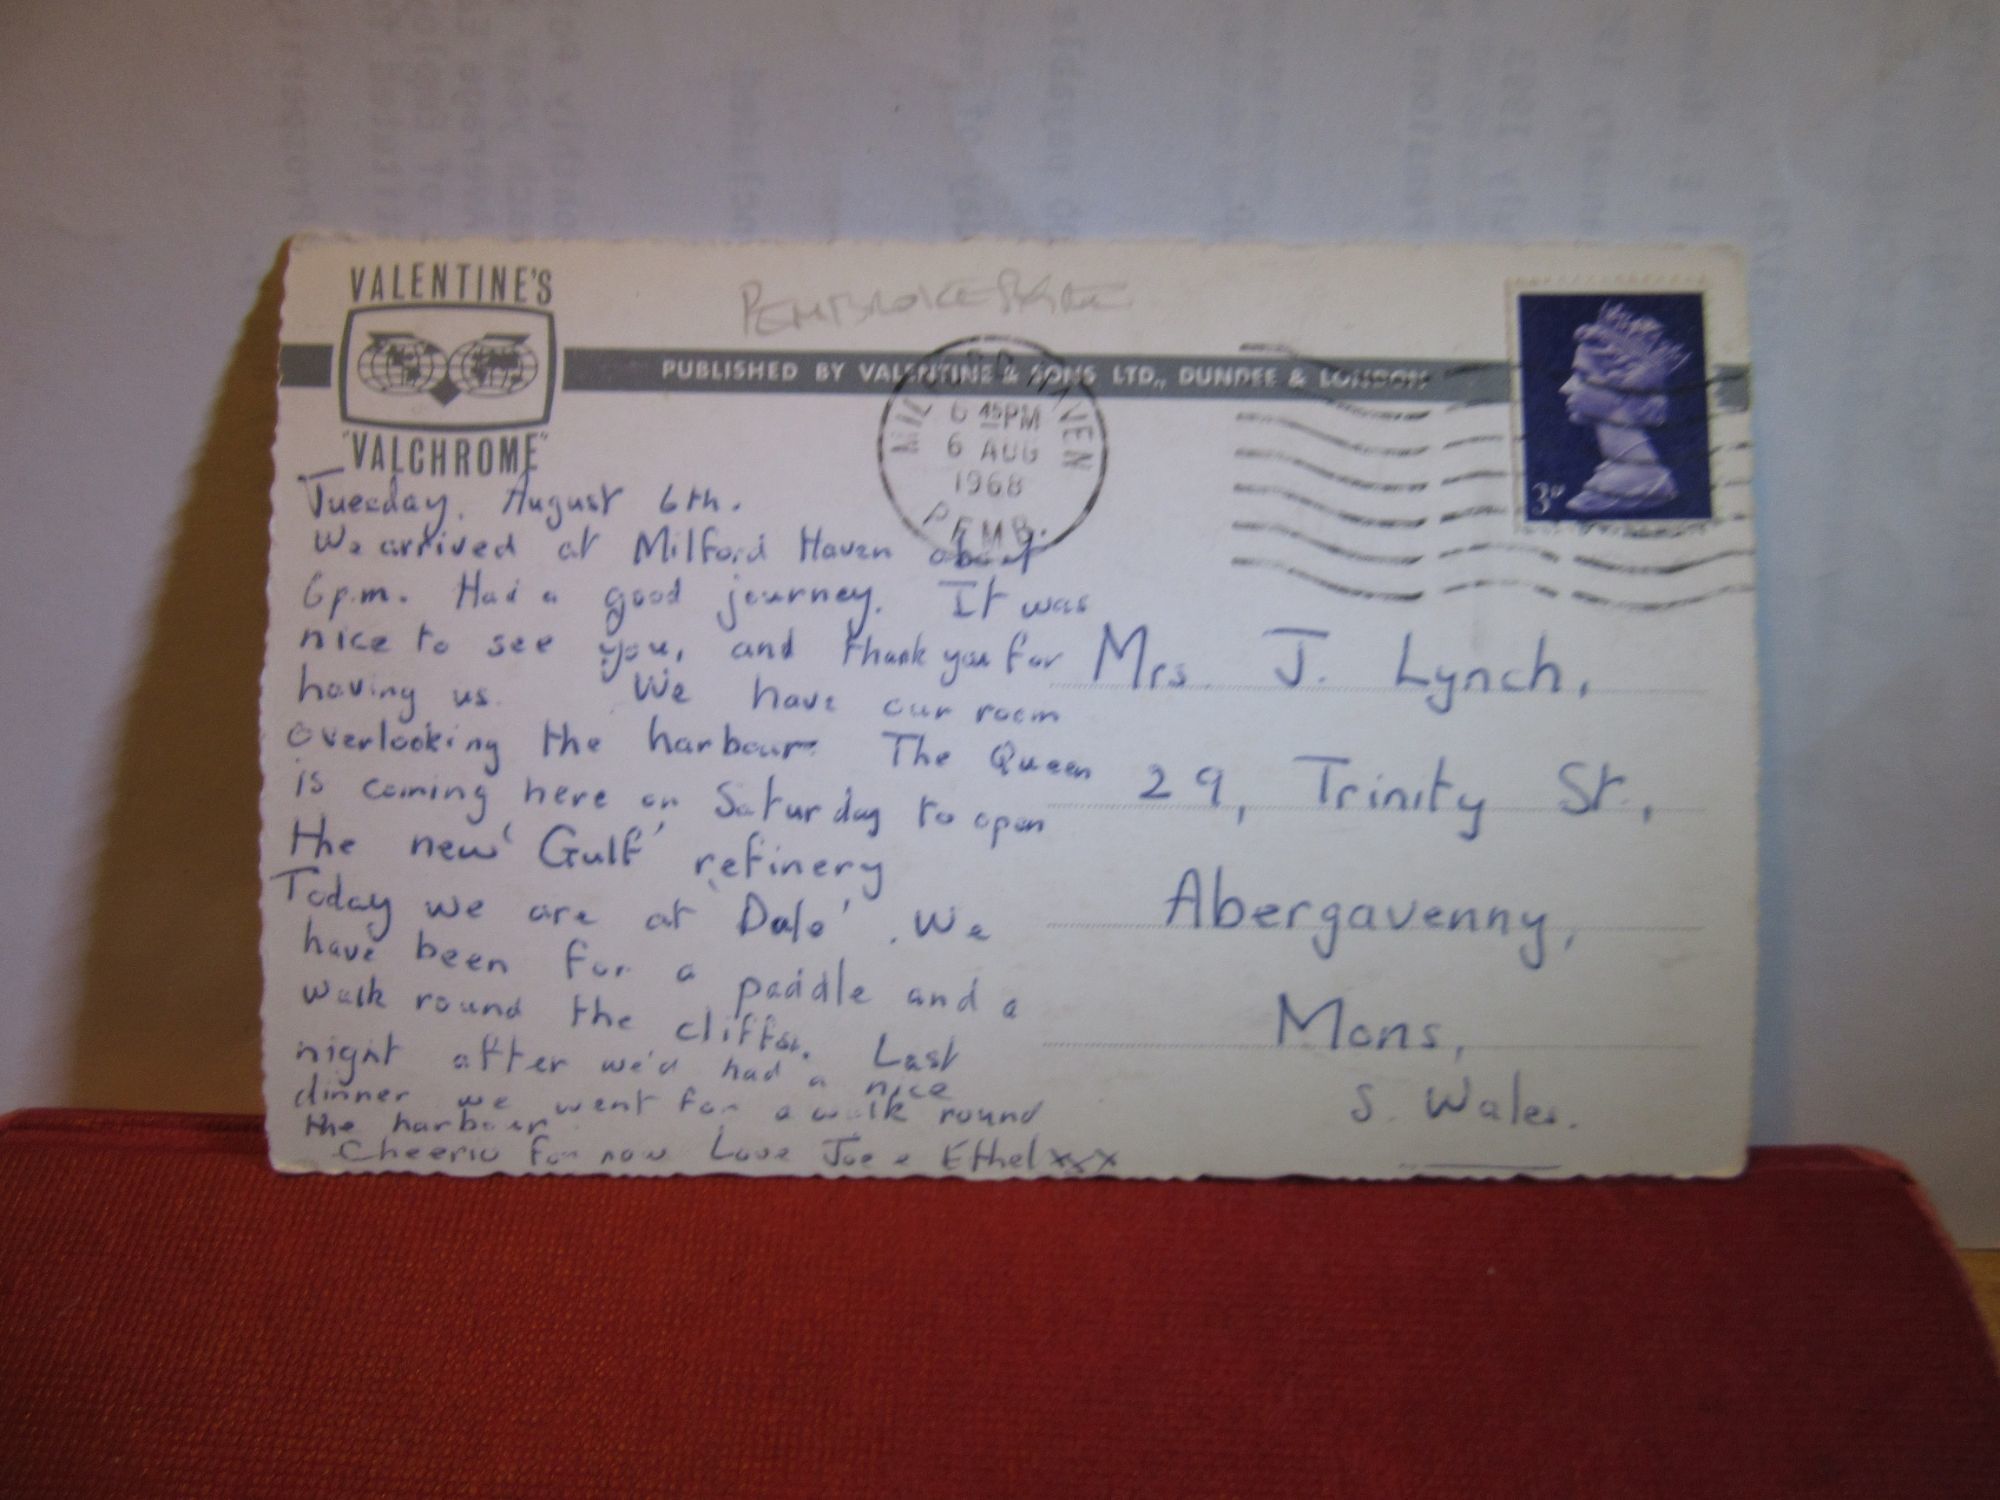 VALENTINE'S
"VALCHROME"
PEMBROKESHIRE
PUBLISHED BY VALENTINE & SONS LTD., DUNDEE & LONDON
MILFORD HAVEN
6 45PM
6 AUG
1968
PEMB.
3D
Tuesday, August 6th.
We arrived at Milford Haven about
6p.m. Had a good journey. It was
nice to see you, and thank you for
having us. We have our room
overlooking the harbour. The Queen
is coming here on Saturday to open
the new 'Gulf' refinery
Today we are at 'Dale'. We
have been for a paddle and a
walk round the cliffs. Last
night after we'd had a nice
dinner we went for a walk round
the harbour.
Cheerio for now Love Joe & Ethel xxx
Mrs. J. Lynch,
29, Trinity St.,
Abergavenny,
Mons,
S. Wales.